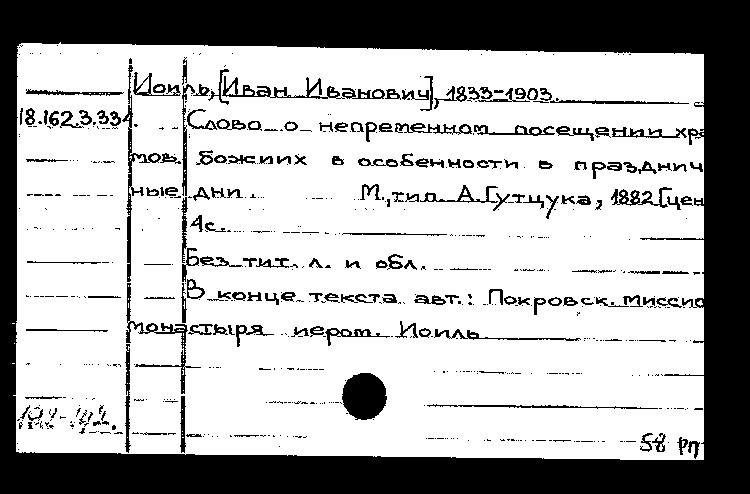 Иоиль, [Иван Иванович], 1833-1903.
18.162.3.334. Слово о непременном посещении хра
мов Божиих в особенности в празднич
ные дни. М., тип. А.Гутцука, 1882 [цен
4с.
Без тит. л. и обл.
В конце текста авт.: Покровск. миссио
монастыря иером. Иоиль
58 рп